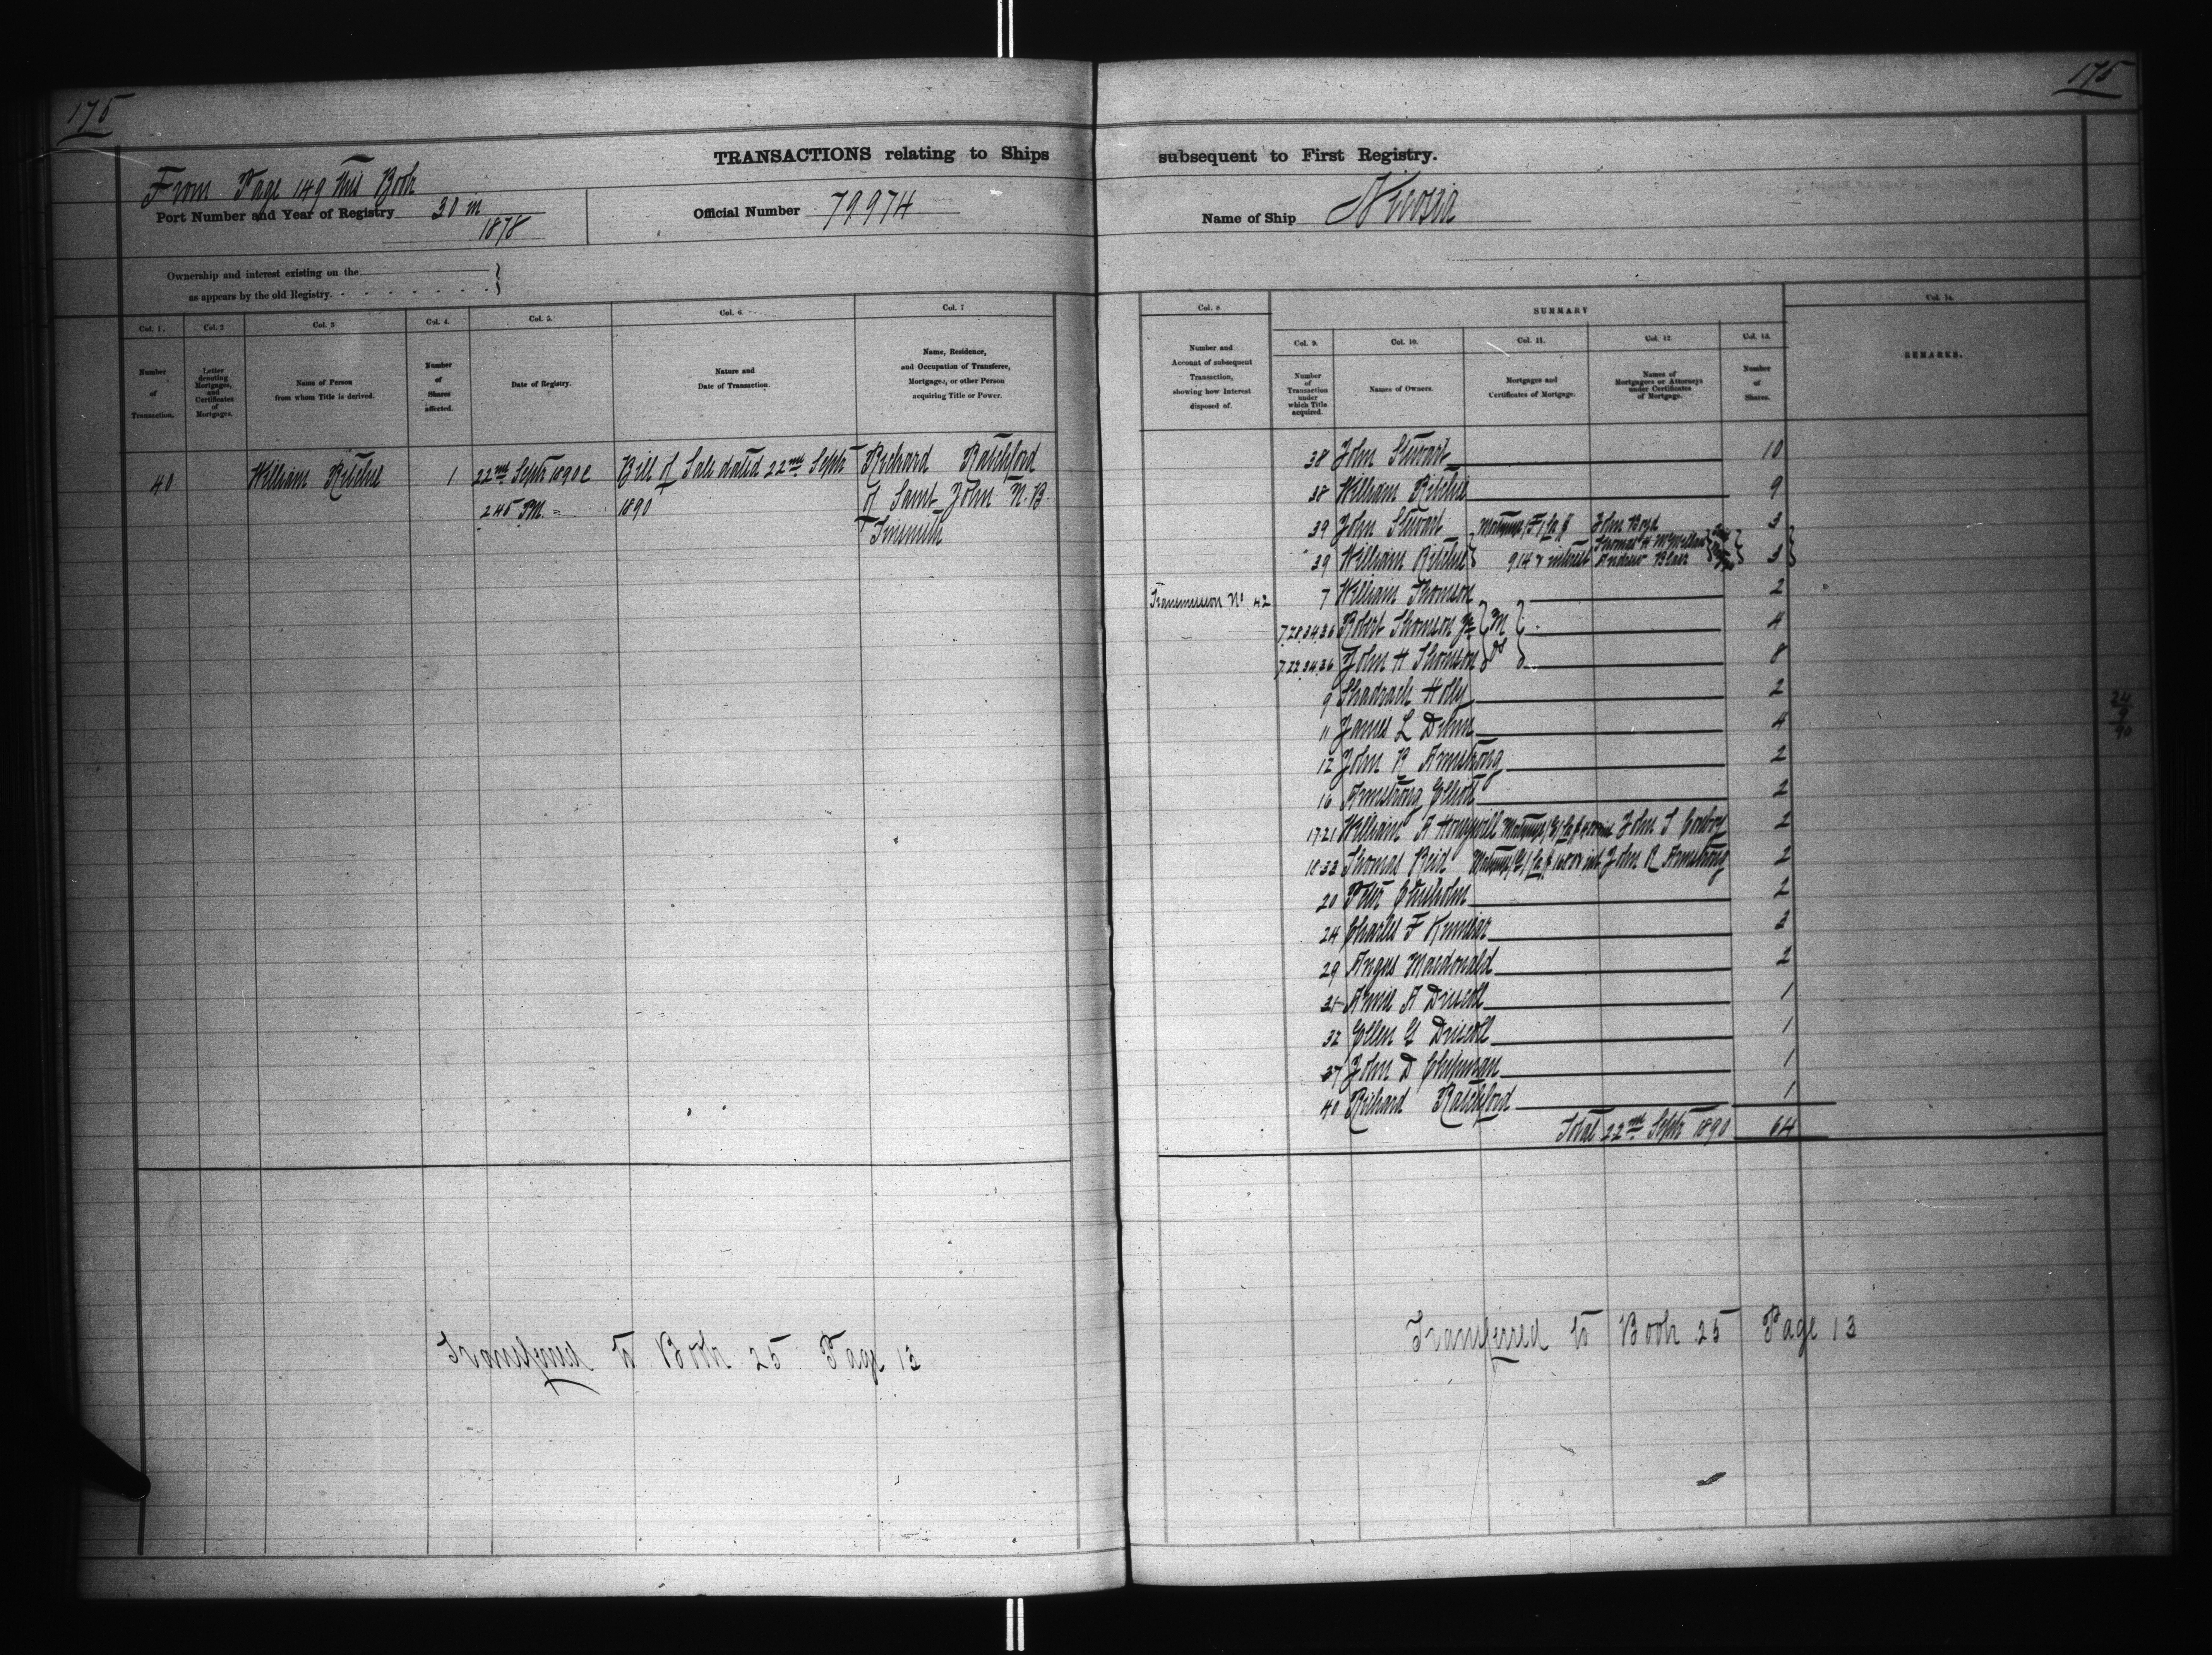 175
175
TRANSACTIONS relating to Ships
subsequent to First Registry.
From Page 149 this Book
Port Number and Year of Registry 30 in 1878
Official Number 79974
Name of Ship Nicosia
Ownership and interest existing on the
as appears by the old Registry.
Col. 1.
Number of Transaction.
Col. 2
Letter denoting Mortgages, and Certificates of Mortgages.
Col. 3
Name of Person from whom Title is derived.
Col. 4.
Number of Shares affected.
Col. 5.
Date of Registry.
Col. 6.
Nature and Date of Transaction.
Col. 7
Name, Residence, and Occupation of Transferee, Mortgagee, or other Person acquiring Title or Power.
40 William Ritchie 1 22nd Septr 1890 Bill of Sale dated 22nd Septr Richard Ratchford
2 45 PM. 1890 of Saint John N.B.
Tinsmith
Col. 8.
Number and Account of subsequent Transaction, showing how Interest disposed of.
SUMMARY
Col. 9.
Number of Transaction under which Title acquired.
Col. 10.
Names of Owners.
Col. 11.
Mortgages and Certificates of Mortgage.
Col. 12.
Names of Mortgagees or Attorneys under Certificates of Mortgage.
Col. 13.
Number of Shares.
Col. 14.
REMARKS.
38 John Stewart 10
38 William Ritchie 9
39 John Stewart Mortgage F for $ John Boyd 3
39 William Ritchie 914 & interest Thomas H McMillan Andrew Blair 3
Transmission No 42 7 William Thomson 2
7.28.34.36 Robert Thomson Jr 4
7.22.34.36 John H Thomson 8
9 Shadrach Holly 2
11 James L Dunn 4
12 John R Armstrong 2
16 Armstrong Elliott 2
17.21 William A Honeywill Mortgage for $ John S 2
18.33 Thomas Reid Mortgage for $ int John R Armstrong 2
20 Peter Chisholm 2
24 Charles F Kinnear 2
29 Angus Macdonald 2
31 Annie A Driscoll 1
32 Ellen G Driscoll 1
37 John D Chipman 1
40 Richard Ratchford 1
Total 22nd Septr 1890 64
24
9
90
Transferred to Book 25 Page 13
Transferred to Book 25 Page 13